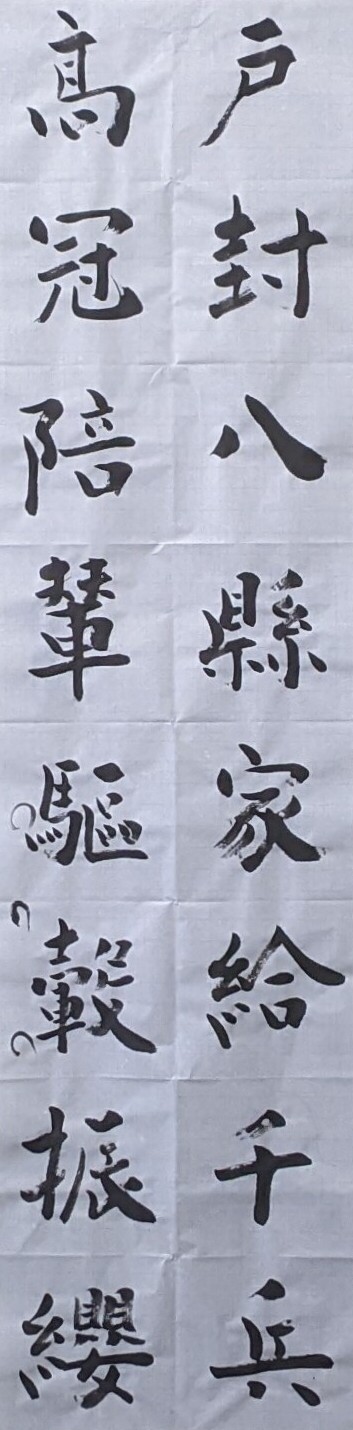 戶封八縣家給千兵
高冠陪輦驅轂振纓